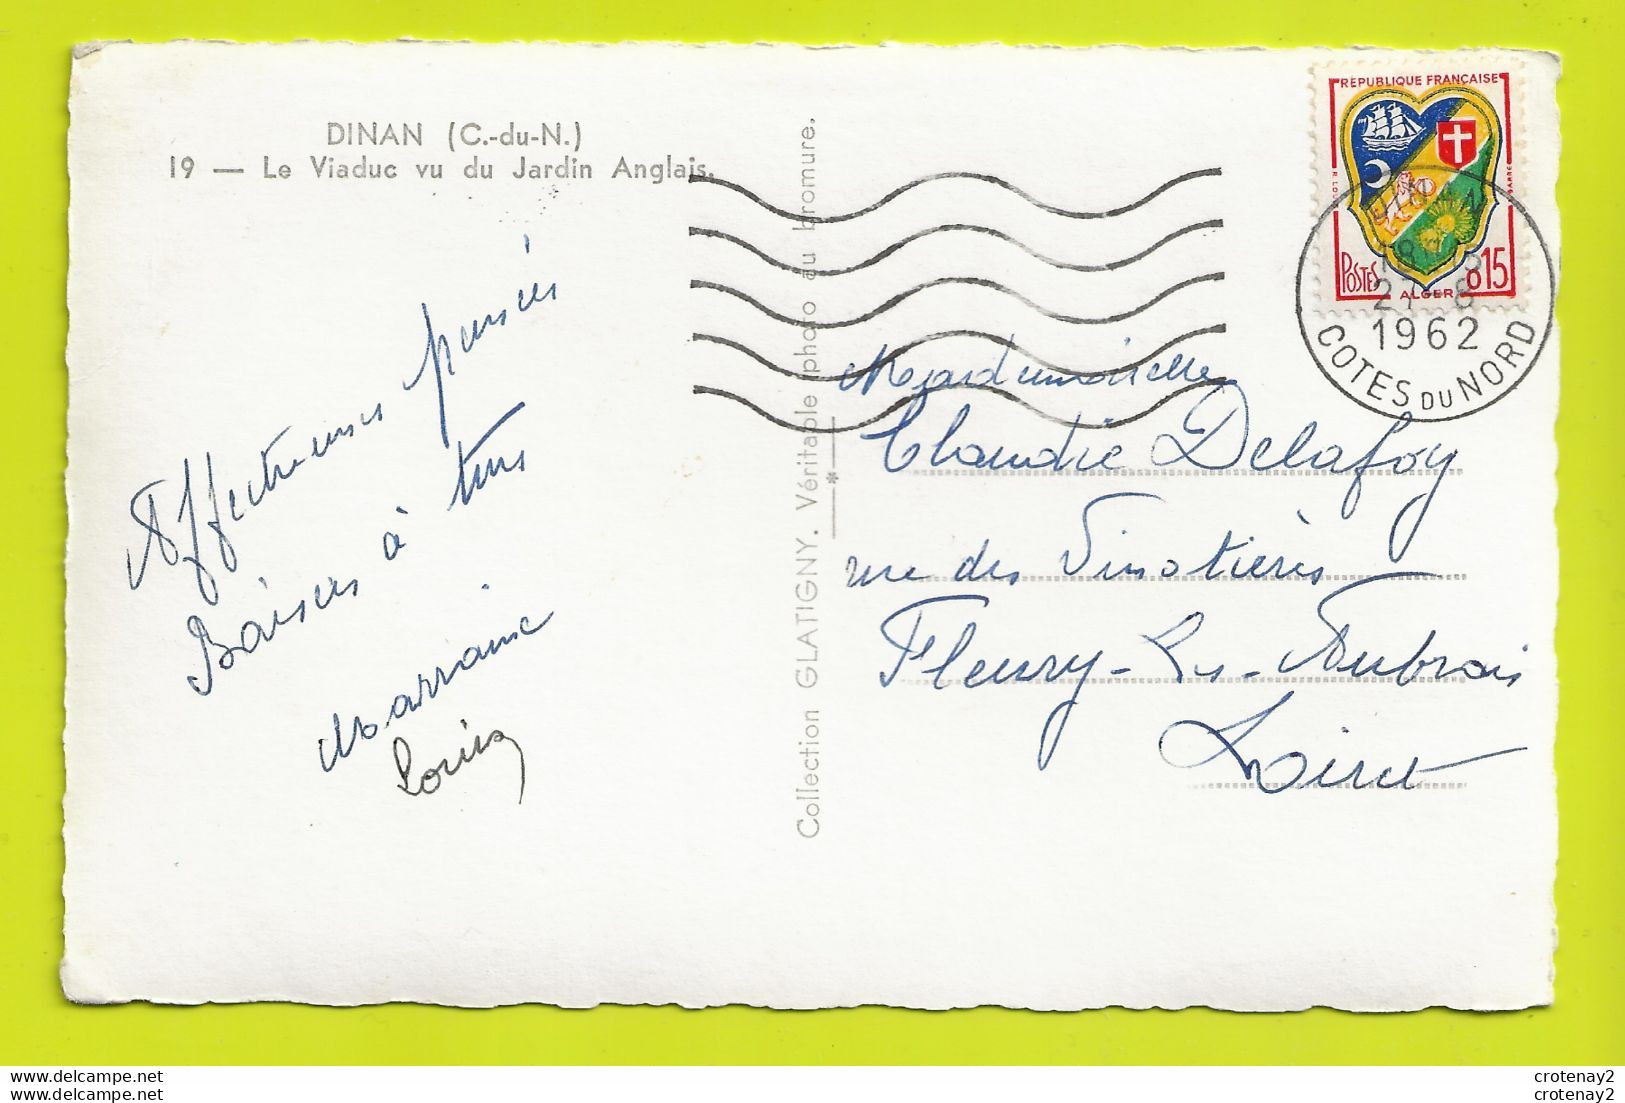 DINAN (C.-du-N.)
19 — Le Viaduc vu du Jardin Anglais.
Affectueuses pensées
Baisers à tous
Marraine
Louis
Collection GLATIGNY. Véritable photo au bromure.
REPUBLIQUE FRANÇAISE
POSTES
ALGER
0,15
DINAN
1962
COTES DU NORD
Mademoiselle
Claudie Delafoy
rue des Vinotières
Fleury-Les-Aubrais
Loiret
www.delcampe.net
www.delcampe.net
crotenay2
crotenay2